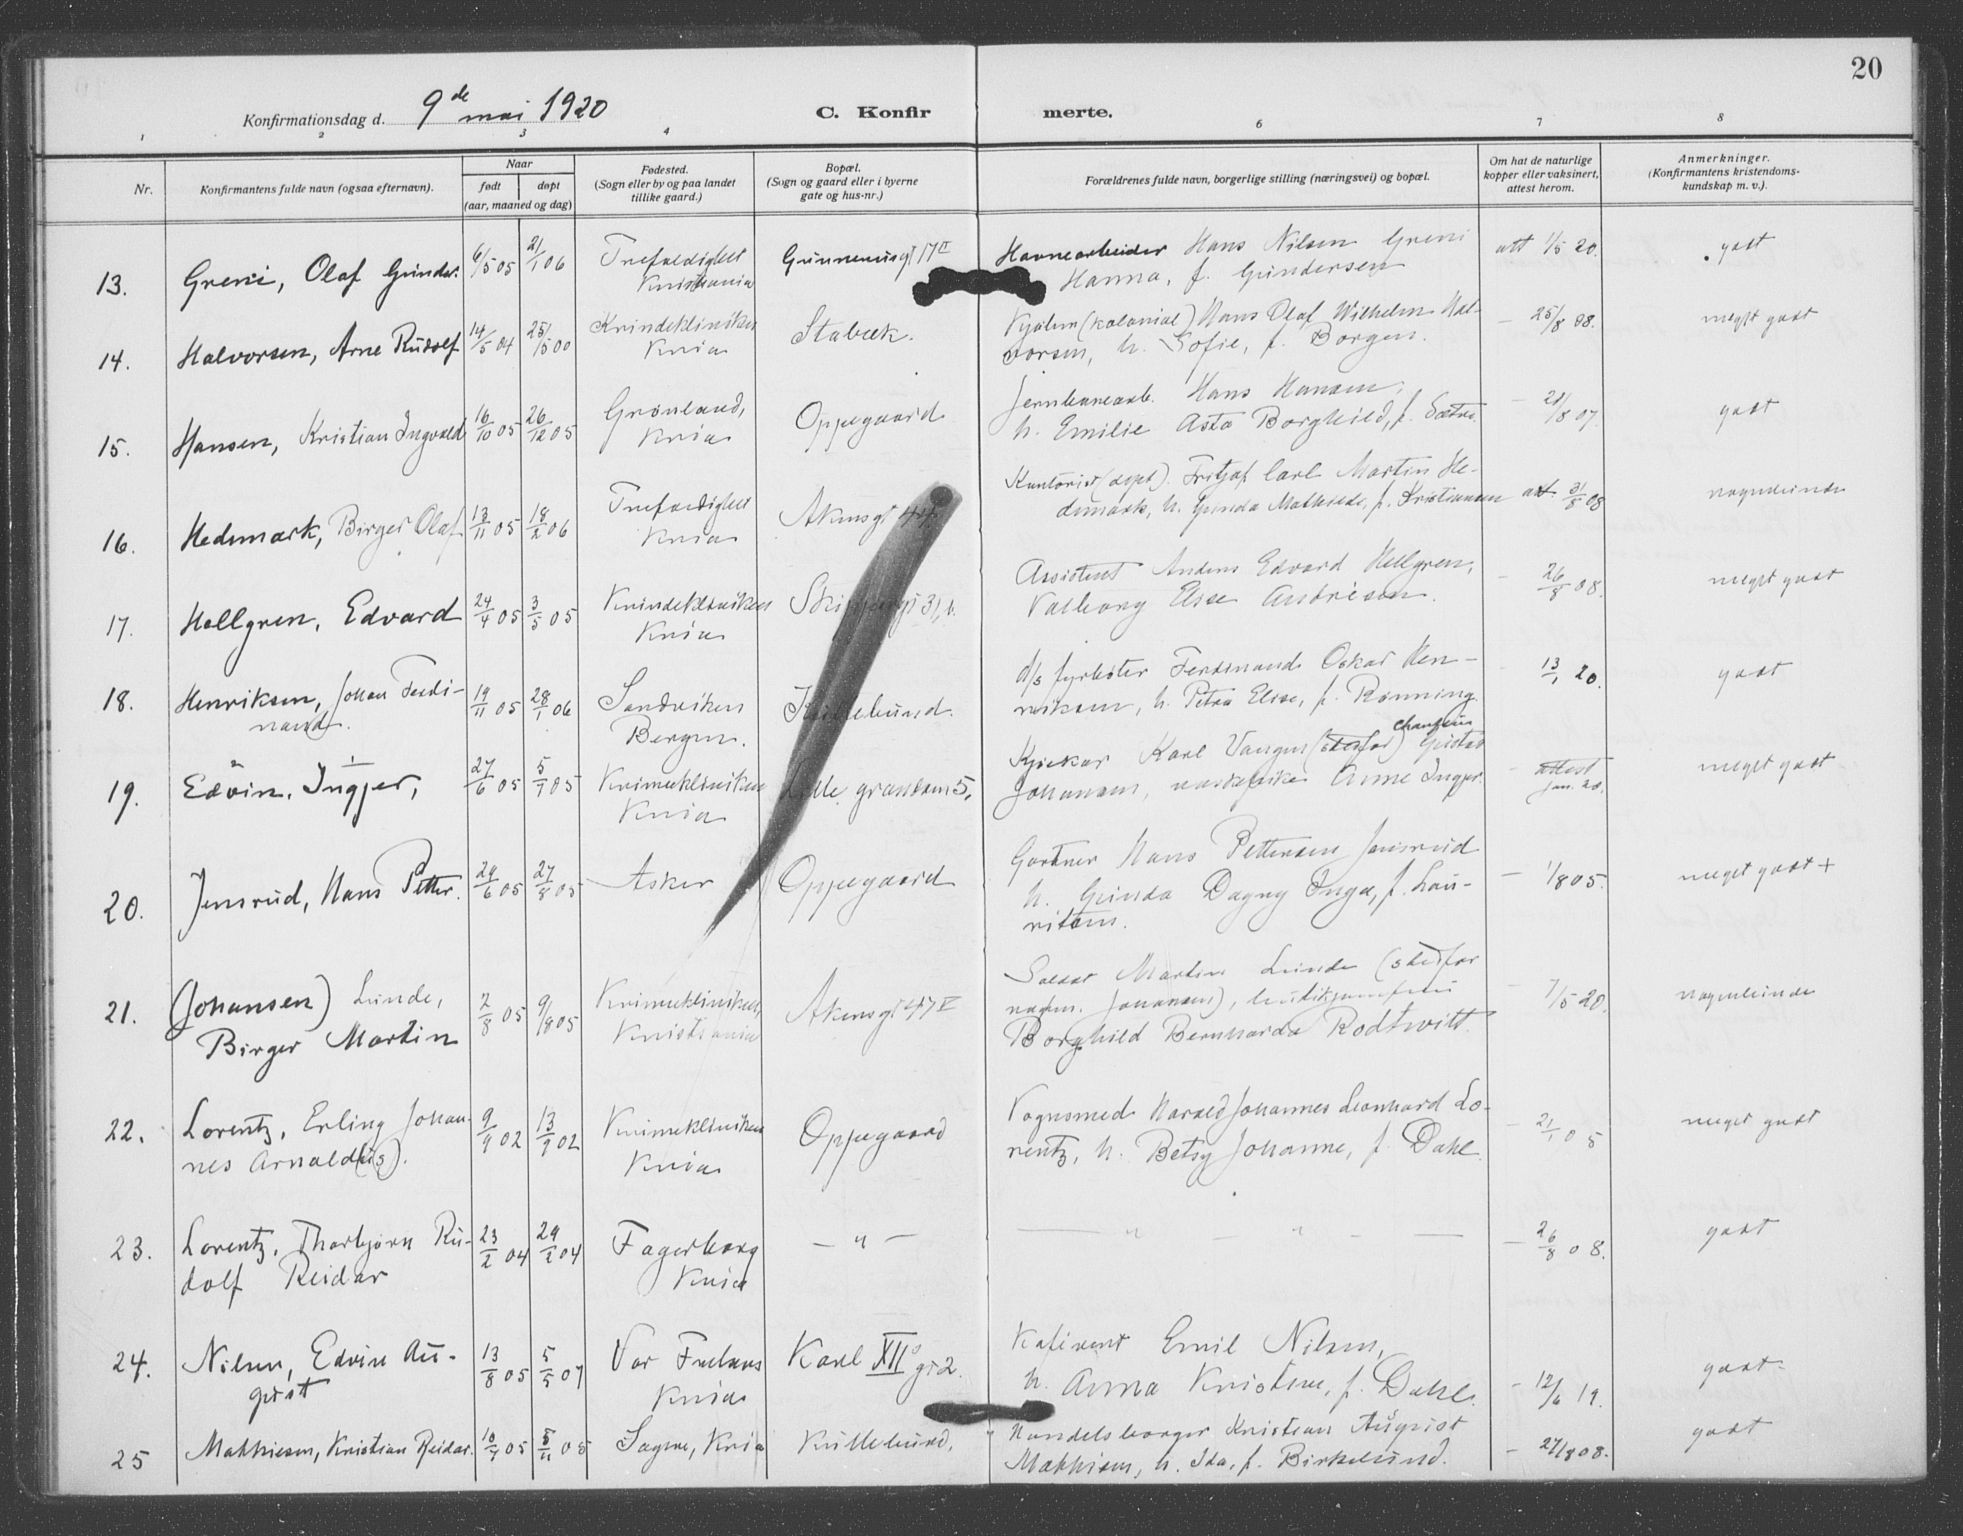 20
Konfirmationsdag d. 9de mai 1920
C. Konfirmerte.
1 2 3 4 6 7 8
Nr.
Konfirmantens fulde navn (ogsaa efternavn).
Naar
født døpt
(aar, maaned og dag)
Fødested.
(Sogn eller by og paa landet
tillike gaard.)
Bopæl.
(Sogn og gaard eller i byerne
gate og hus-nr.)
Forældrenes fulde navn, borgerlige stilling (næringsvei) og bopæl.
Om hat de naturlige
kopper eller vaksinert,
attest herom.
Anmerkninger.
(Konfirmantens kristendoms-
kundskap m. v.).
13. Greni, Olaf Gunder. 6/5 05 21/1 06 Trefoldighet
Kristiania
Havnearbeider Hans Nilsen Greni
Hanna, f. Gundersen
att 1/5 20. godt
14. Halvorsen, Arne Rudolf 14/5 04 Kvindekliniken
Kria
Stabæk.
(kolonial) Hans Olaf Wilhelm Hal-
vorsen, h. Sofie, f. Borgen.
— 25/8 08. meget godt
15. Hansen, Kristian Ingvald 16/10 05 26/12 05 Grønland,
Kria
Oppegaard
Jernbanearb. Hans Hansen,
h. Emilie Asta Borghild, f. Sætre.
— 21/8 07. godt
16. Hedemark, Birger Olaf 13/11 05 18/2 06 Trefoldighet
Kria
Akersgt
Kontorist (dept). Fritjof Carl Martin He-
demark, h. Gunda Mathilde, f. Kristiansen
att 31/8 08 nogenlunde
17. Hellgren, Edvard 24/4 05 3/5 05 Kvindekliniken
Kria
Skippergt 31, b.
Assistent Anders Edvard Hellgren,
Valborg Elise
— 26/8 08. meget godt
18. Henriksen, Johan Ferdi-
nand.
19/11 05 28/1 06 Sandviken
Bergen.
d/s fyrbøter Ferdinand Oskar Hen-
riksen, h. Petra Elise, f. Rønning
— 13/1 20. godt
19. Edvin, Ingjer, 27/6 05 5/7 05 Kvinnekliniken
Kria
Lille grensen 5.
Karl Vangen (stedfar) chauffør Gustav
Johansen, Anne Ingjer.
— attest
jan. 20.
meget godt
20. Jensrud, Hans Petter. 29/6 05 27/8 05 Asker Oppegaard
Gartner Hans Pettersen Jensrud
h. Gunda Dagny Inga, f. Lau-
ritsen.
— 1/8 05. meget godt +
21. (Johansen) Lunde,
Birger Martin
2/8 05 9/8 05 Kvinnekliniken,
Kristiania
Akersgt 47 V
Martin Lunde (stedfar
Johansen),
Borghild Bernharda Rodtwitt.
— 7/5 20. nogenlunde
22. Lorentz, Erling Johan-
nes Arnald(us).
9/9 02 13/9 02 Kvinnekliniken
Kria
Oppegaard
Vognsmed Harald Johannes Leonhard Lo-
rentz, h. Betsy Johanne, f. Dahl.
— 21/1 05 meget godt
23. Lorentz, Thorbjørn Ru-
dolf Reidar
23/2 04 29/2 04 Fagerborg
Kria
— " — — " — " — —
— 26/8 08. godt
24. Nilsen, Edvin Au-
gust
13/8 05 5/5 07 Vor Frelsers
Kria
Karl XIIs gt 2.
Kafévert Emil Nilsen,
h. Anna Kristine, f. Dahl.
— 12/6 19. godt
25 Mathiesen, Kristian Reidar. 10/7 05 5/11 05 Sagene, Kria Kullebund.
Handelsborger Kristian August
Mathiesen, h. Ida, f. Birkelund.
— 27/8 08. godt